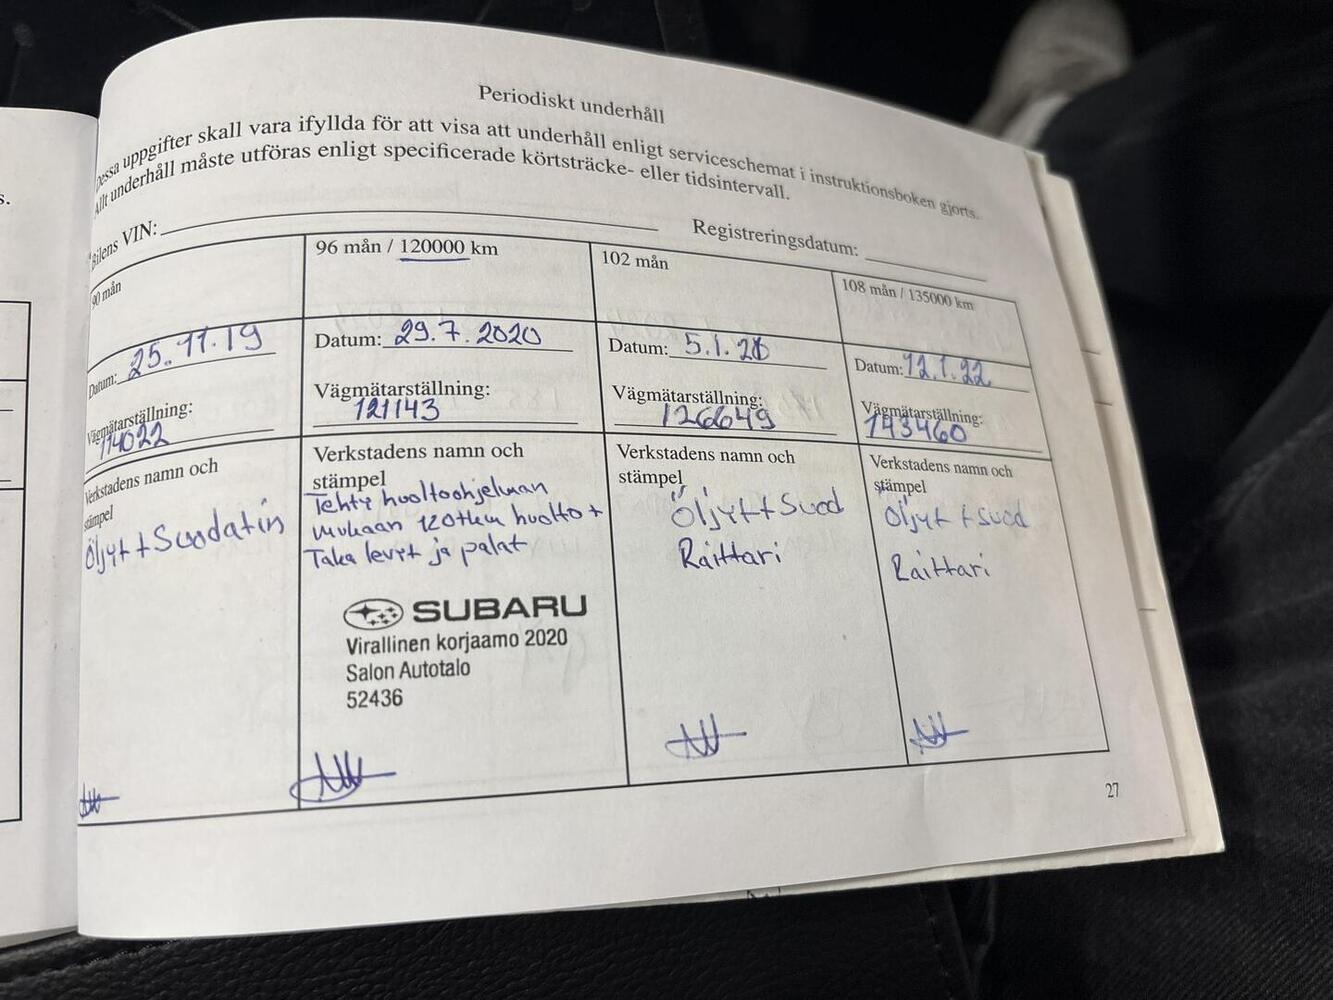 s.
Periodiskt underhåll
Dessa uppgifter skall vara ifyllda för att visa att underhåll enligt serviceschemat i instruktionsboken gjorts.
Allt underhåll måste utföras enligt specificerade körtsträcke- eller tidsintervall.
Bilens VIN:
Registreringsdatum:
90 mån
Datum: 25.11.19
Vägmätarställning:
114022
Verkstadens namn och
stämpel
Öljyt + Suodatin
96 mån / 120000 km
Datum: 29.7.2020
Vägmätarställning:
121143
Verkstadens namn och
stämpel
Tehty huoltoohjelman
mukaan 120tkm huolto +
Taka levyt ja palat
SUBARU
Virallinen korjaamo 2020
Salon Autotalo
52436
102 mån
Datum: 5.1.
Vägmätarställning:
126649
Verkstadens namn och
stämpel
Öljyt + Suod
Raittari
108 mån / 135000 km
Datum: 12.1.22
Vägmätarställning:
143460
Verkstadens namn och
stämpel
Öljyt + suod
Raittari
27